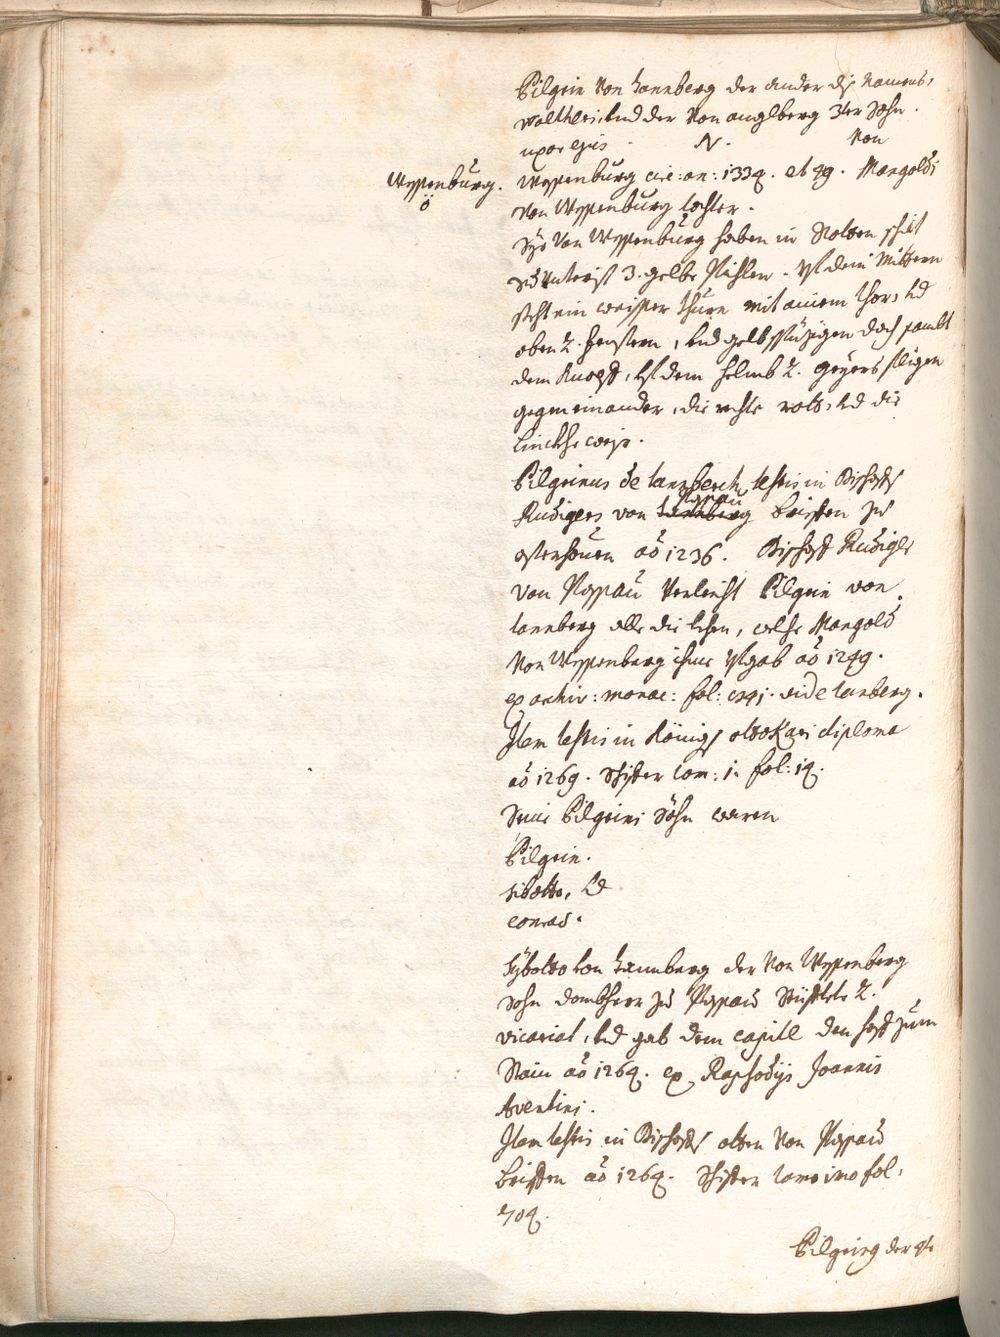 Pilgrin von Tannberg der ander diß Namens,
Walthers, und der von Anglberg 3ter Sohn.
uxor ejus . N. Von
Wessenburg circ: an: 1334. et 49. Mangolds
Wessenburg.
von Wessenburg tochter.
von Wessenburg haben in Rotten schilt
3. gelbe . Auf dem Mittern
steht ein weisser thurn mit ainem thor, und
oben 2. fenstern, und gelb spizigen dach sambt
dem Knopf, auf dem helmb 2. geyers fligen
gegen einander, die rechte roth, und die
linckhe weiß.
Pilgrinus de tannberch testis in Bischoffs
Rudigers von Passau brieffen zu
osterhouen aõ 1236. Bischoff Rudiger
von Passau verleicht Pilgrin von
tannberg alle die lehen, welche Mangold
von Wessenberg ihme aufgab aõ 1249.
ex archiv: monac: fol: vide tanberg.
Item testis in Königs ottokari diploma
aõ 1269. tom: 1. fol: 14.
Pilgrini Söhn waren
Pilgrin.
sibotto, und
conrad.
Sybotto von Tannberg der von Wessenberg
Sohn dombherr zu Passau stifftete 2.
vicariat, und gab dem capitl den hoff zum
Stain aõ 1264. ex Rapsodijs Joannis
Aventini.
Item testis in Bischoffs otten von Passau
brieffen aõ 1264. tomo imo fol:
704.
Pilgring der 4te